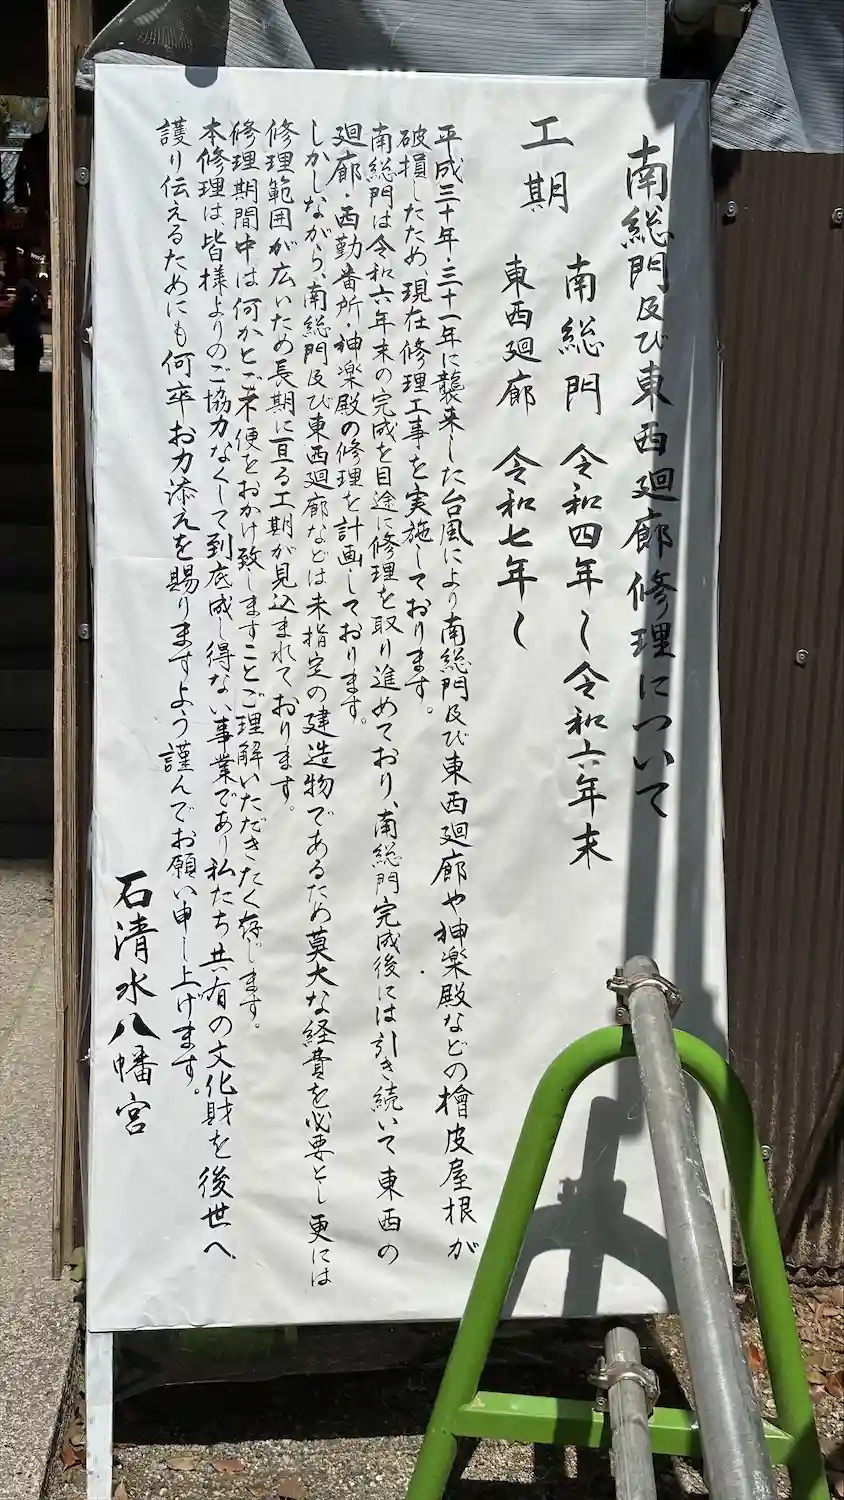 南総門及び東西廻廊修理について
工期
南総門 令和四年〜令和六年末
東西廻廊 令和七年〜
平成三十年・三十一年に襲来した台風により南総門及び東西廻廊や神楽殿などの檜皮屋根が
破損したため、現在修理工事を実施しております。
南総門は令和六年末の完成を目途に修理を取り進めており、南総門完成後には引き続いて東西の
廻廊・西勤番所・神楽殿の修理を計画しております。
しかしながら、南総門及び東西廻廊などは未指定の建造物であるため莫大な経費を必要とし更には
修理範囲が広いため長期に亘る工期が見込まれております。
修理期間中は何かとご不便をおかけ致しますことご理解いただきたく存じます。
本修理は皆様よりのご協力なくして到底成し得ない事業であり私たち共有の文化財を後世へ
護り伝えるためにも何卒お力添えを賜りますよう謹んでお願い申し上げます。
石清水八幡宮